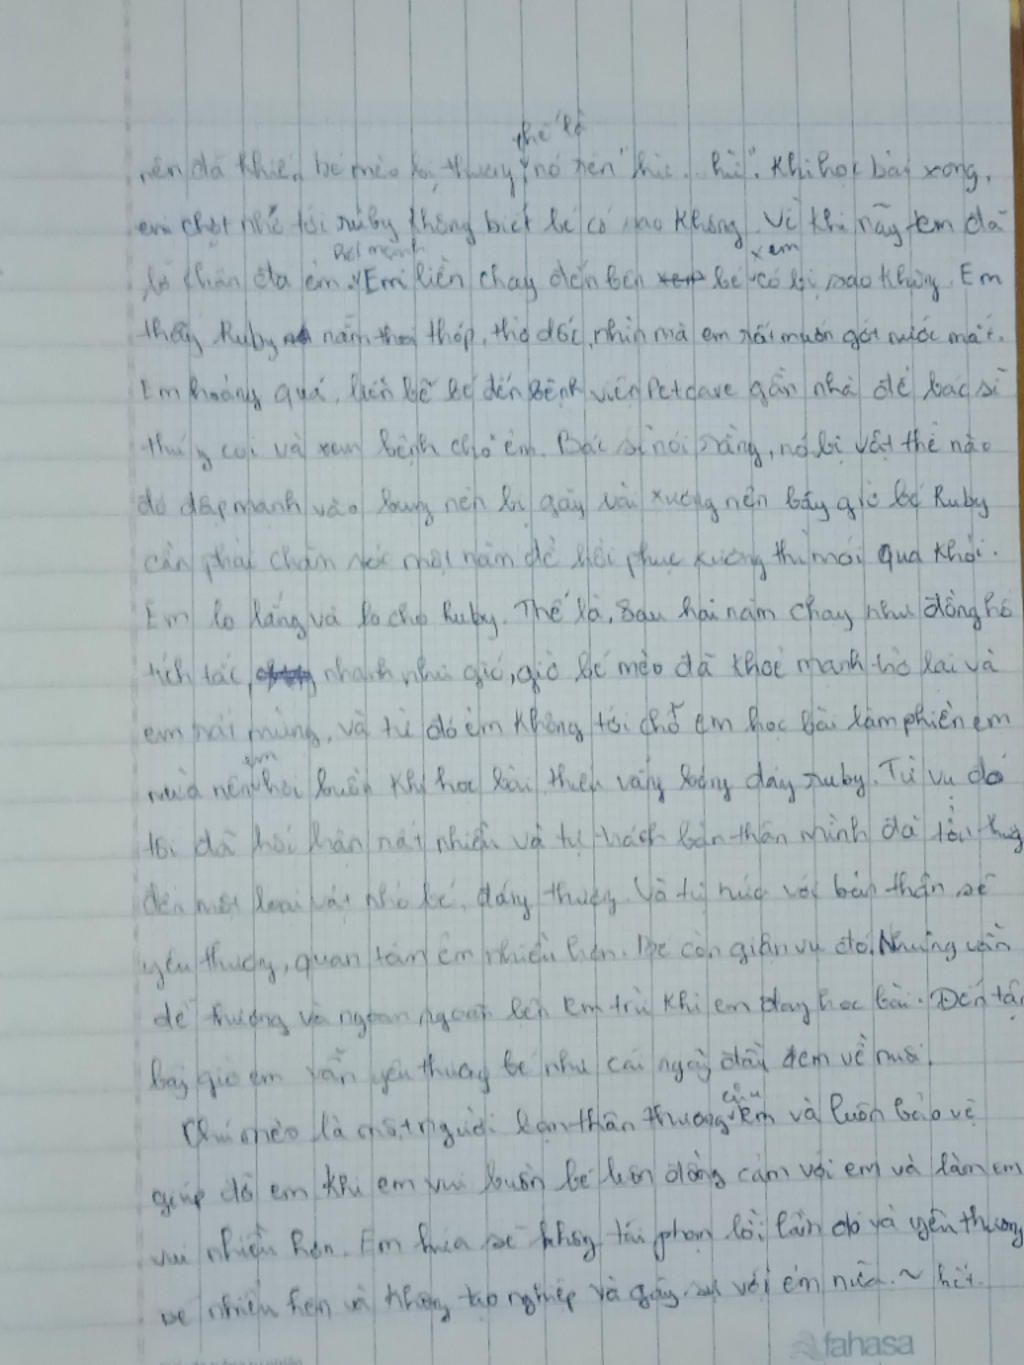 thế là
nên đã khiến bé mèo bị thương, nó rên "hic.. hic". Khi học bài xong,
em chợt nhớ tới ruby không biết bé có sao không. Vì khi nãy em đã
lỡ chân đá em mạnh. Em liền chạy đến bên bé xem có bị sao không. Em
thấy Ruby nằm thoi thóp, thở dốc, nhìn mà em rất muốn rớt nước mắt.
Em hoảng quá, liền bế bé đến bệnh viện Petcare gần nhà để bác sĩ
thú y coi và xem bệnh cho em. Bác sĩ nói rằng, nó bị vật thể nào
đó đập mạnh vào bụng nên bị gãy vài xương nên bây giờ bé Ruby
cần phải chăm sóc một năm để hồi phục xương thì mới qua khỏi.
Em lo lắng và lo cho Ruby. Thế là, sau hai năm chạy như đồng hồ
tích tắc, nhanh như gió, giờ bé mèo đã khoẻ mạnh trở lại và
em rất mừng, và từ đó em không tới chỗ em học bài làm phiền em
nữa nên em hơi buồn khi học bài thiếu vắng bóng dáng ruby. Từ vụ đó
tôi đã hối hận rất nhiều và tự trách bản thân mình đã tổn thương
đến một loài vật nhỏ bé, đáng thương. Và tự hứa với bản thân sẽ
yêu thương, quan tâm em nhiều hơn. Bé còn giận vụ đó. Nhưng vẫn
dễ thương và ngoan ngoãn bên em trừ khi em đang học bài. Đến tận
bây giờ em vẫn yêu thương bé như cái ngày đầu đem về nuôi.
Chú mèo là một người bạn thân thương của em và luôn bảo vệ
giúp đỡ em khi em vui buồn bé luôn đồng cảm với em và làm em
vui nhiều hơn. Em hứa sẽ không tái phạm lỗi lần đó và yêu thương
bé nhiều hơn và không tạo nghiệp và gây sự với em nữa. ~ hết.
fahasa